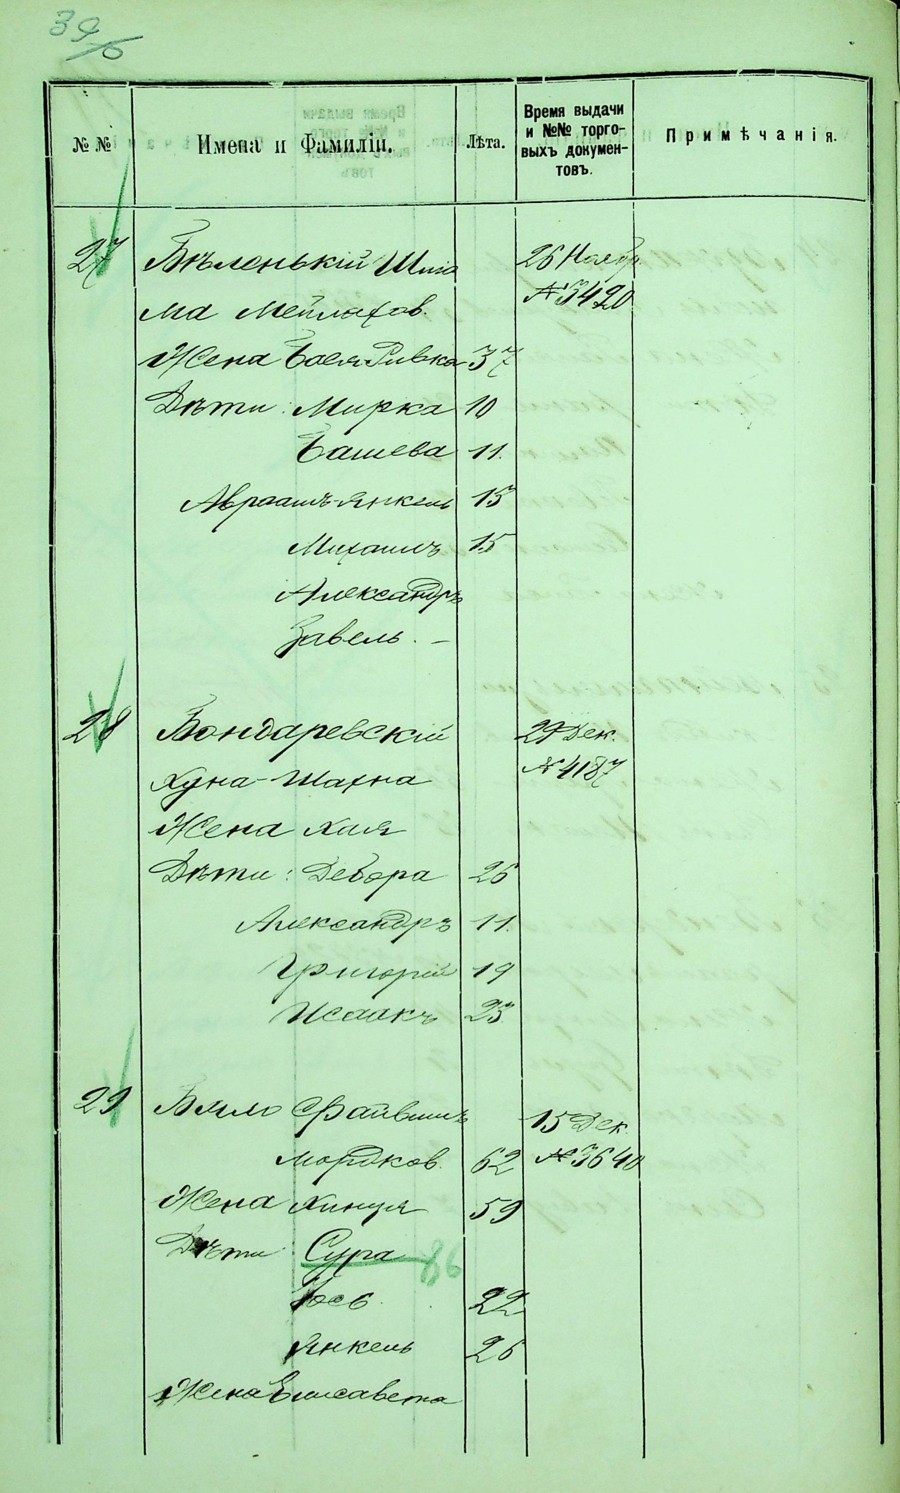 39/6
№ №
Имена и Фамиліи.
Лѣта.
Время выдачи
и №№ торго-
выхъ докумен-
товъ.
Примѣчанія.
27 Бѣленькій Шлио 26 Ноябр.
ма Мейлахов. № 3420
Жена Бася Ривка 37
Дѣти: Мирка 10
Башева 11.
Авраамъ-Янкель 13
Михаилъ 15
Александръ
Завель. —
28 Бондаревскій 29 Дек.
Хуна-Шахна № 4187
Жена Хая
Дѣти: Дебора 26
Александръ 11.
Григорій 19
Исаакъ 23
29 Бяло Файвишъ 15 Дек.
Мордков. 62 № 3640
Жена Хинця 59
Дѣти Сура 86
Іось 22
Янкель 26
Жена Елисавета